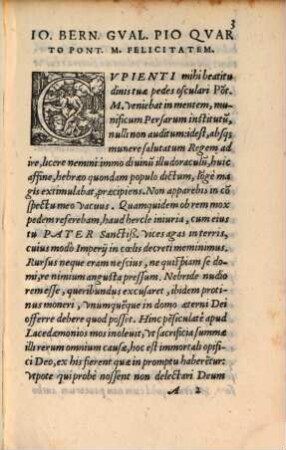 3
IO. BERN. GVAL. PIO QVAR
TO PONT. M. FELICITATEM.
CVPIENTI mihi beatitu
dinis tuæ pedes osculari Põe.
M. veniebat in mentem, mu
nificum Persarum institutũ,
nulli non auditum: idest, absq;
munere salutatum Regem ad
ire, licere nemini immo diuinũ illud oraculũ, huic
affine, hebræo quondam populo dictum, lõgè ma
gis extimulabat, præcipiens. Non apparebis in cõ
spectu meo vacuus. Quamquidem ob rem mox
pedem referebam, haud hercle iniuria, cum eius
tu PATER Sanctiss. vices agas in terris,
cuius modò Imperij in cœlis decreti meminimus.
Rursus neque eram nescius, ne quispiam se do-
mi, re nimium angusta pressum. Nebride nudio
rem esse, queribundus excusaret, ibidem proti-
nus moneri, vnumquẽque in domo æterni Dei
offerre debere quod possit. Hinc pẽsiculatè apud
Lacedæmonios mos inoleuit, vt sacrificia summæ
illi rerum omnium causæ, hoc est immortali opifi
ci Deo, ex his fierent quæ in promptu haberẽtur:
vtpote qui probè nossent non delectari Deum
A 2